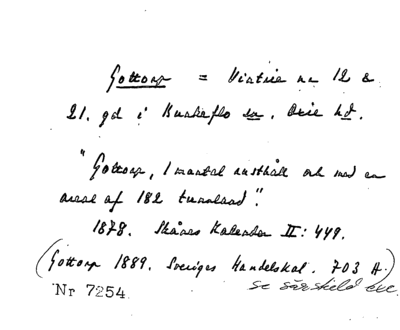 Gottorp = Vintrie nr 12 &
21. gd i Bunkeflo sn. Oxie hd.
"Gottorp, 1 mantal rusthåll och med en
areal af 182 tunnland".
1878. Skånes Kalender II: 449.
(Gottorp 1889. Sveriges Handelskal. 703 H.)
Nr 7254 se särskild exc.